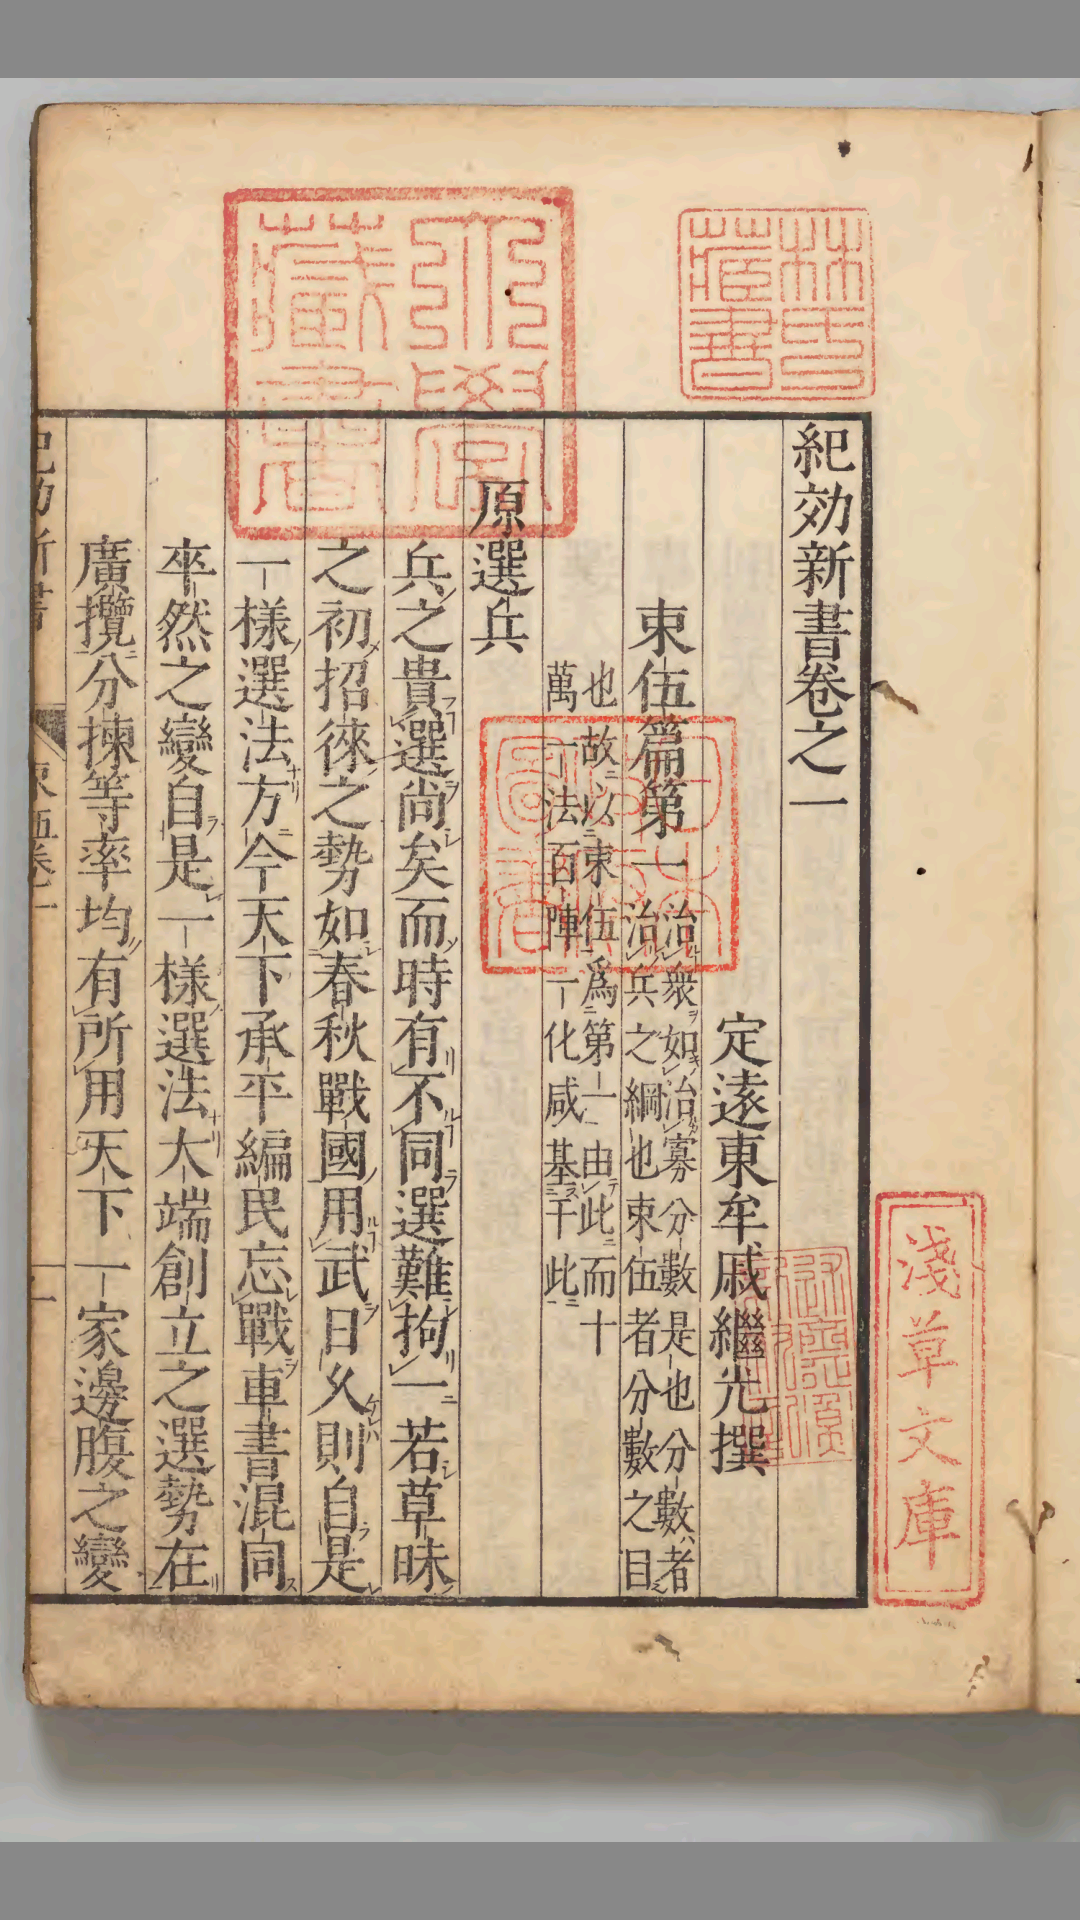 紀効新書卷之一
定遠東牟戚繼光撰
束伍篇第一
治衆如治寡分數是也分數者
治兵之綱也束伍者分數之目
也故以束伍爲第一由此而十
萬一法百陣一化咸基于此
原選兵
兵之貴選尚矣而時有不同選難拘一若草昧
之初招徠之勢如春秋戰國用武日久則自是
一樣選法方今天下承平編民忘戰車書混同
卒然之變自是一樣選法大端創立之選勢在
廣攬分揀等率均有所用天下一家邊腹之變
林氏藏書
大學藏書
淺草文庫